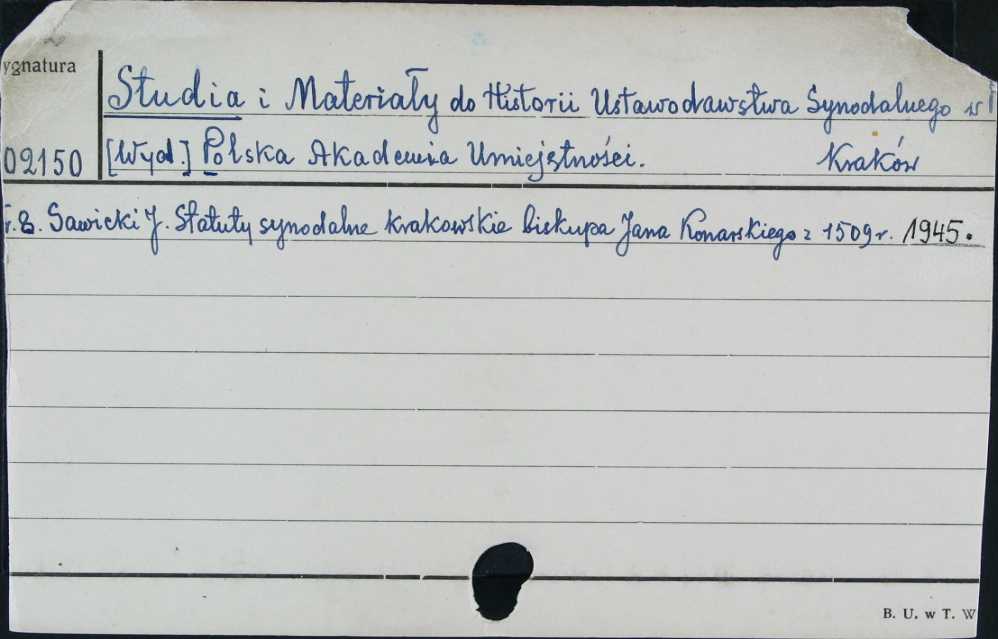 ygnatura
Studia i Materiały do Historii Ustawodawstwa Synodalnego w
02150 [Wyd.] Polska Akademia Umiejętności. Kraków
Sawicki J. Statuty synodalne krakowskie biskupa Jana Konarskiego z 1509 r. 1945.
B. U. w T. W